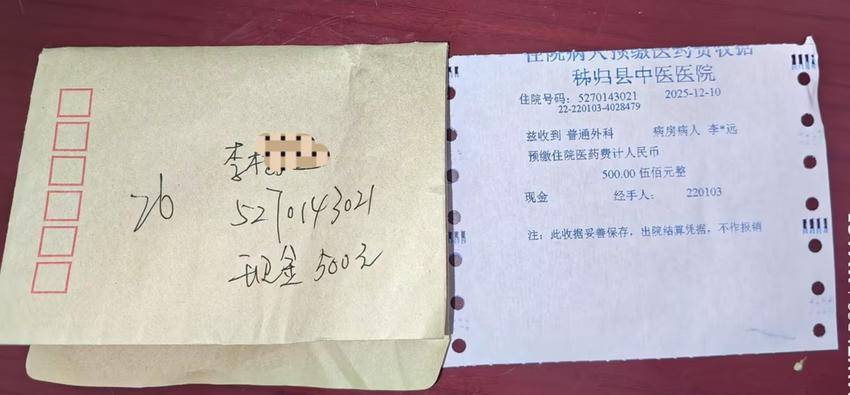 李
26
5270143021
现金 500元
住院病人预缴医药费收据
秭归县中医医院
住院号码：5270143021 2025-12-10
22-220103-4028479
兹收到 普通外科 病房病人 李*远
预缴住院医药费计人民币
500.00 伍佰元整
现金 经手人： 220103
注：此收据妥善保存，出院结算凭据，不作报销